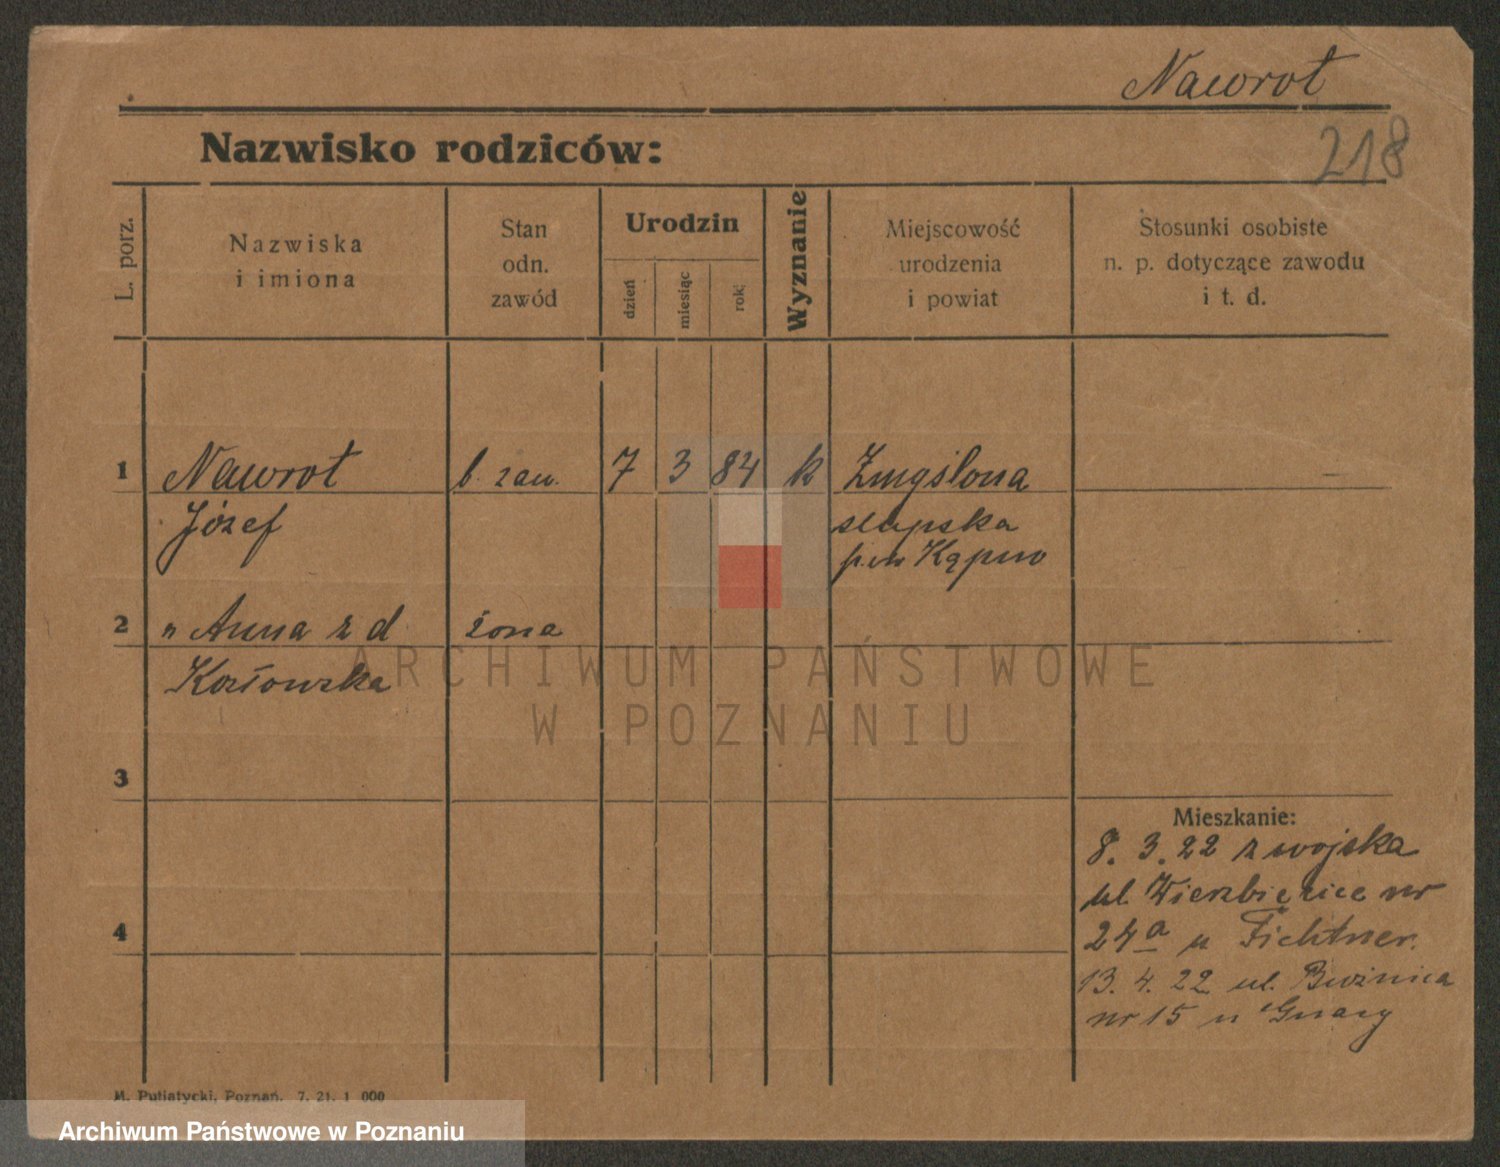 Nawrot
218
Nazwisko rodziców:
L. porz.
Nazwiska
i imiona
Stan
odn.
zawód
Urodzin
dzień
miesiąc
rok
Wyznanie
Miejscowość
urodzenia
i powiat
Stosunki osobiste
n. p. dotyczące zawodu
i t. d.
1 Nawrot b. zaw. 7 3 84 k Zmyślona
Józef słupska
pow Kępno
2 " Anna z d żona
Kozłowska
3
4
Mieszkanie:
8. 3. 22 z wojska
ul. Wierzbięcice nr
24a u Fichtner.
13. 4. 22 ul.
nr 15 u
M. Putiatycki, Poznań. 7. 21. 1 000
ARCHIWUM PAŃSTWOWE
W POZNANIU
Archiwum Państwowe w Poznaniu